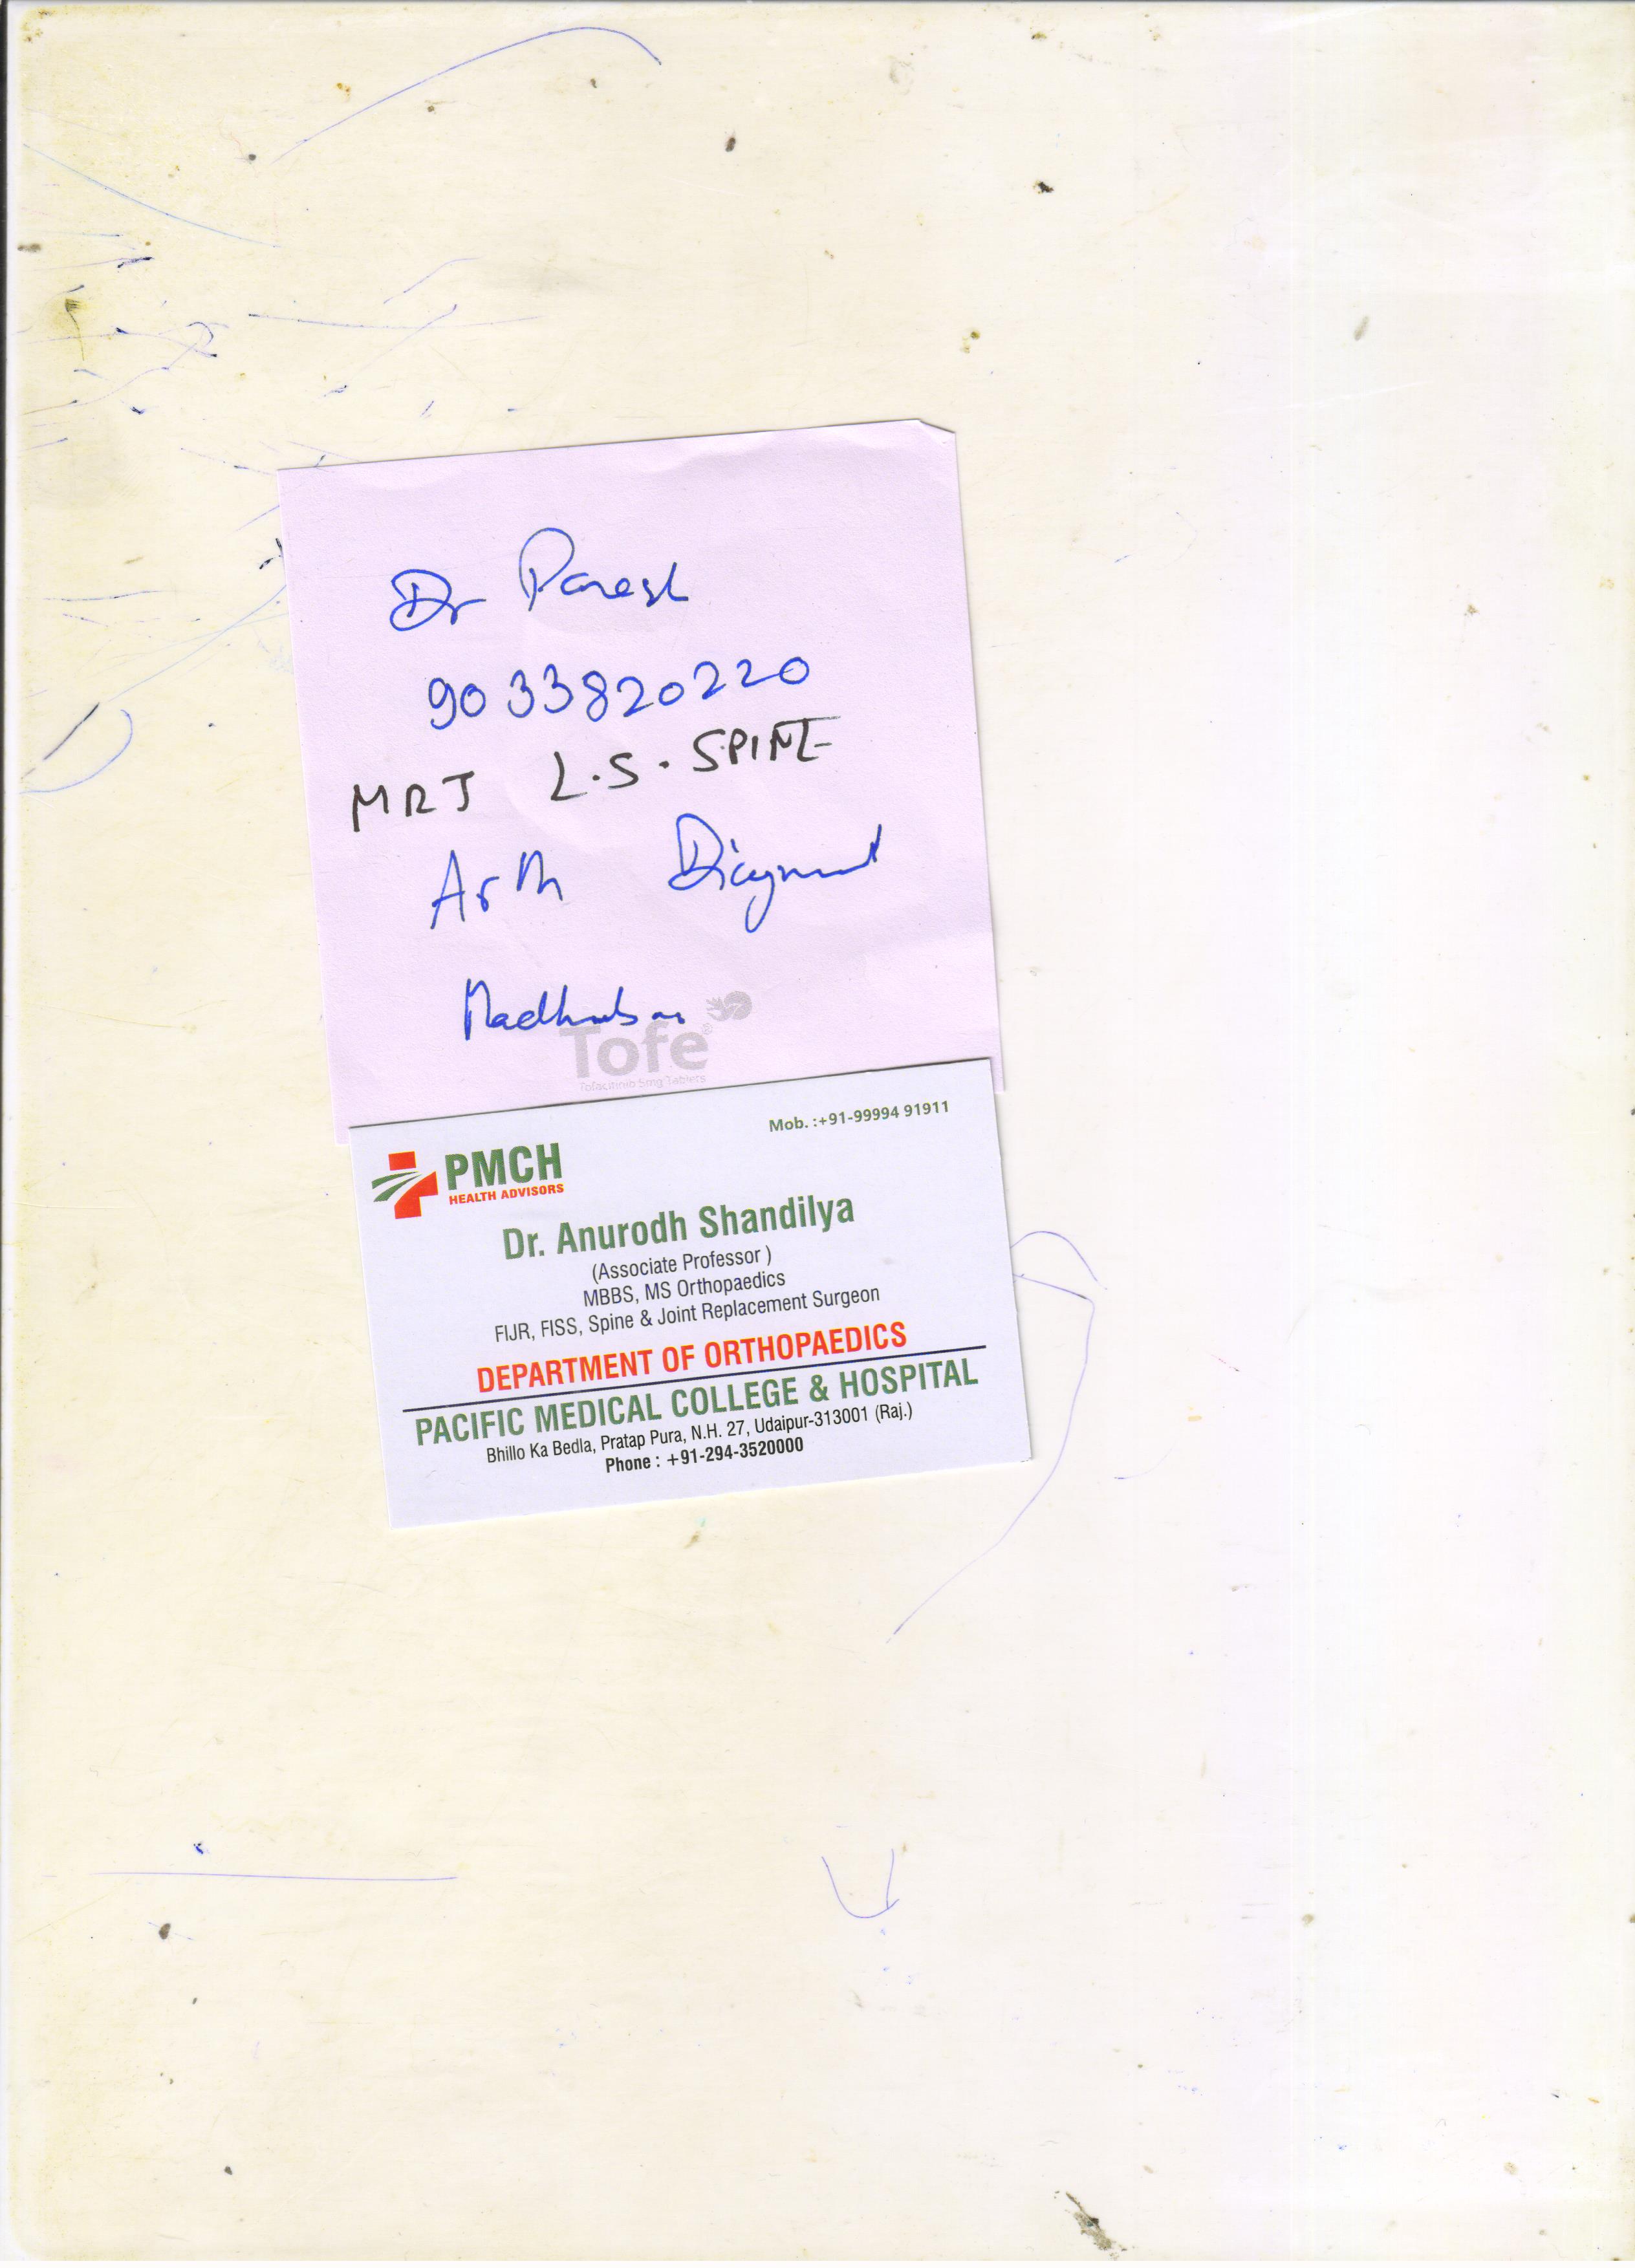 Dr Paresh
9033820220
MRI L.S. SPINE
Arth Diagnost
Madhuban
Tofe®
Tofacitinib 5mg Tablets
Mob. :+91-99994 91911
PMCH
HEALTH ADVISORS
Dr. Anurodh Shandilya
(Associate Professor )
MBBS, MS Orthopaedics
FIJR, FISS, Spine & Joint Replacement Surgeon
DEPARTMENT OF ORTHOPAEDICS
PACIFIC MEDICAL COLLEGE & HOSPITAL
Bhillo Ka Bedla, Pratap Pura, N.H. 27, Udaipur-313001 (Raj.)
Phone : +91-294-3520000